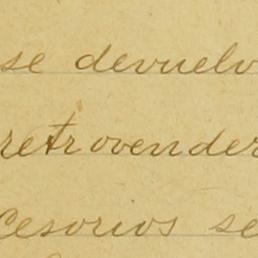 se devuelv
retrovender
Cesorios se